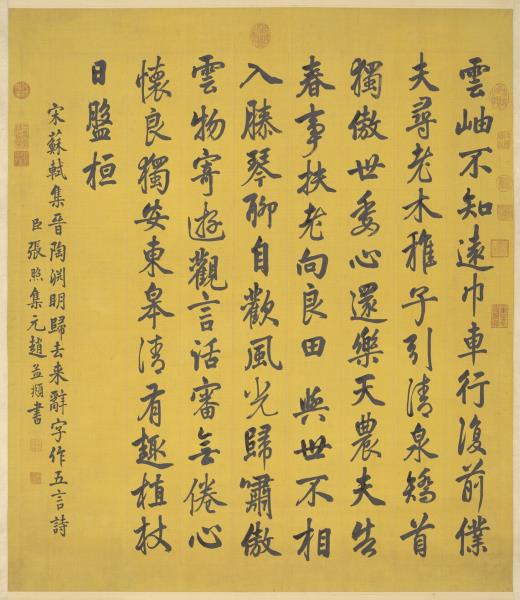 雲岫不知遠巾車行復前僕
夫尋老木稚子引清泉矯首
獨傲世委心還樂天農夫告
春事扶老向良田 與世不相
入膝琴聊自歡風光歸嘯傲
雲物寄遊觀言話審無倦心
懷良獨安東皋清有趣植杖
日盤桓
宋蘇軾集晉陶淵明歸去来辭字作五言詩
臣張照集元趙孟頫書